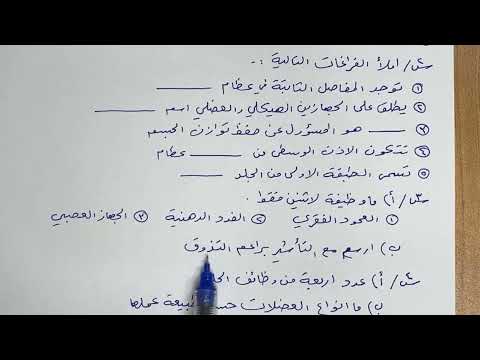 س١/ املأ الفراغات التالية :-
١ توجد المفاصل الثابتة في عظام ______
٢ يطلق على الجهازين الهيكلي والعضلي اسم ______
٣ ______ هو المسؤول عن حفظ توازن الجسم
٤ تتكون الاذن الوسطى من ______ عظام
٥ تسمى الطبقة الاولى من الجلد ______
أ) ما وظيفة لاثنين فقط .
١ العمود الفقري ٢ الغدد الدهنية ٣ الجهاز العصبي
ب) ارسم مع التأشير براعم التذوق
أ) عدد اربعة من وظائف
ب) ما انواع العضلات طبيعة عملها